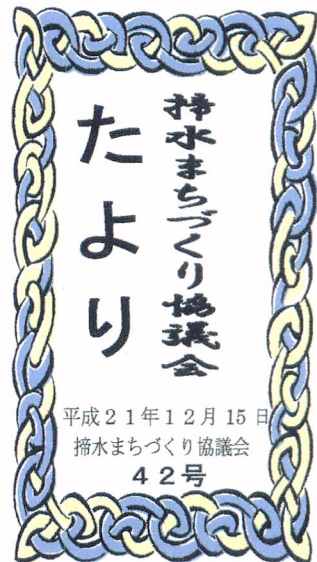 揥水まちづくり協議会
たより
平成21年12月15日
揥水まちづくり協議会
42号